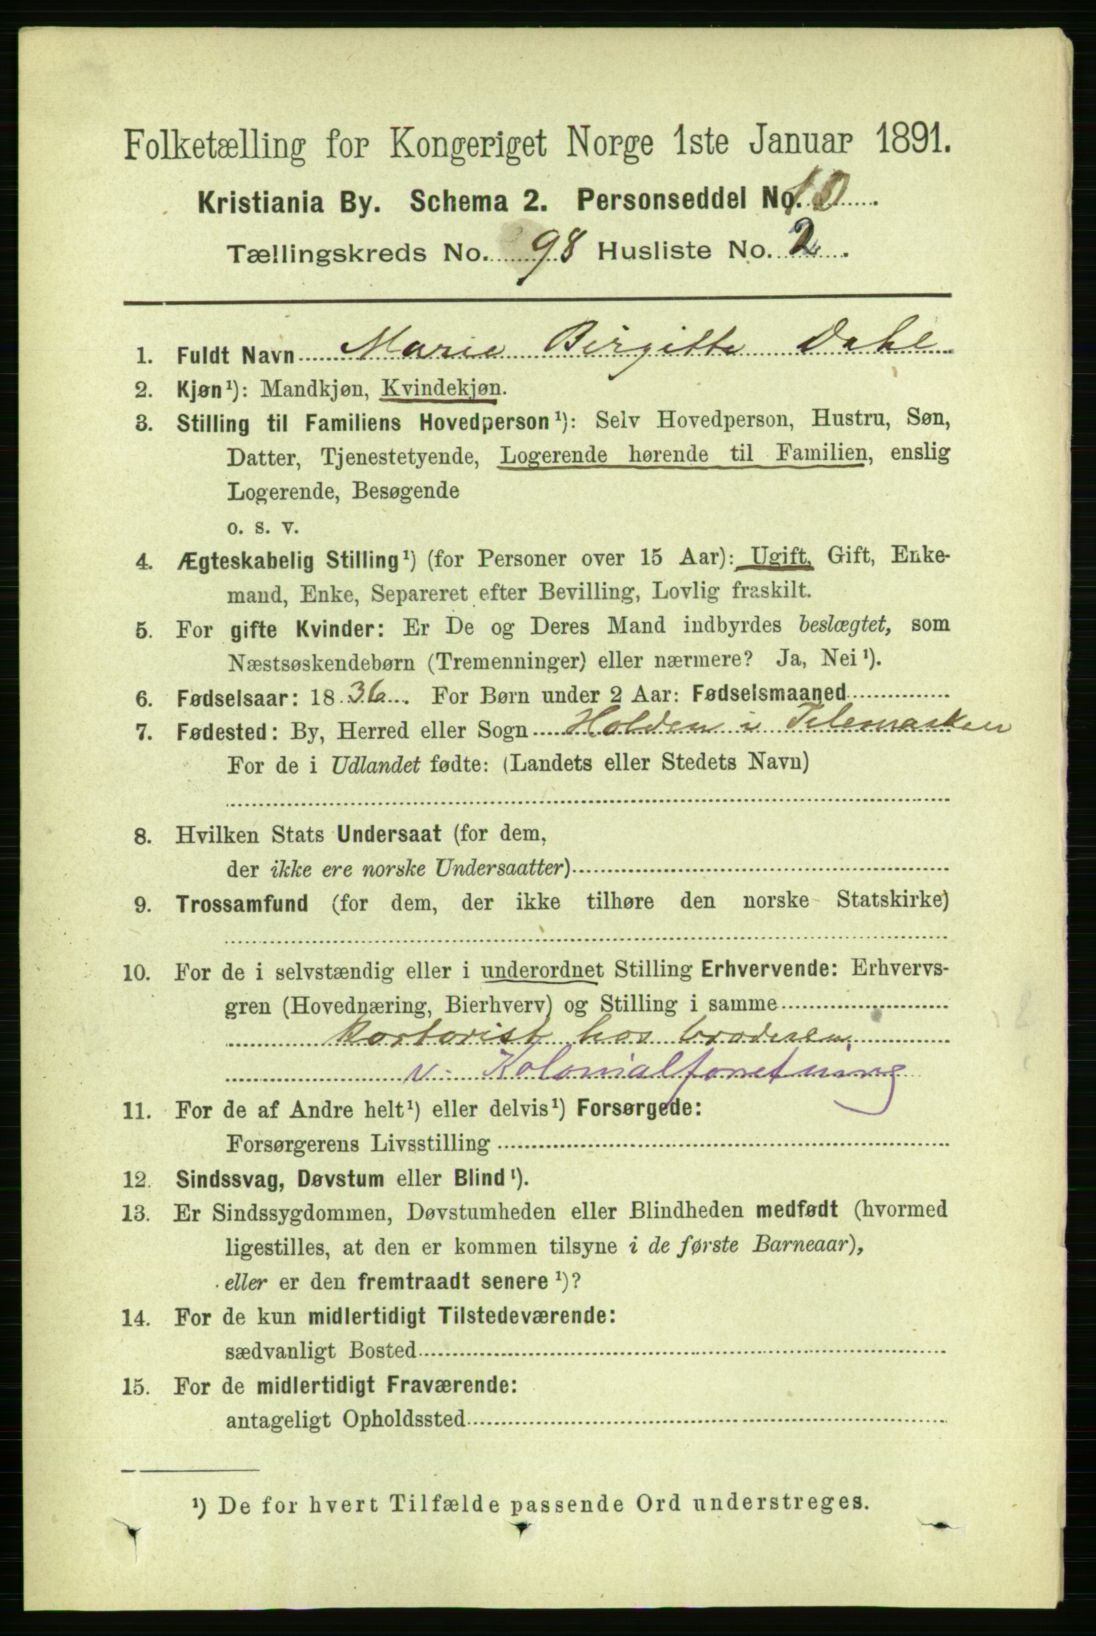 Folketælling for Kongeriget Norge 1ste Januar 1891.
Kristiania By. Schema 2. Personseddel No. 10.
Tællingskreds No. 98 Husliste No. 2.
1. Fuldt Navn Marie Birgitte Dahl
2. Kjøn¹): Mandkjøn, Kvindekjøn.
3. Stilling til Familiens Hovedperson¹): Selv Hovedperson, Hustru, Søn,
Datter, Tjenestetyende, Logerende hørende til Familien, enslig
Logerende, Besøgende
o. s. v.
4. Ægteskabelig Stilling¹) (for Personer over 15 Aar): Ugift, Gift, Enke-
mand, Enke, Separeret efter Bevilling, Lovlig fraskilt.
5. For gifte Kvinder: Er De og Deres Mand indbyrdes beslægtet, som
Næstsøskendebørn (Tremenninger) eller nærmere? Ja, Nei¹).
6. Fødselsaar: 1836. For Børn under 2 Aar: Fødselsmaaned
7. Fødested: By, Herred eller Sogn Holden i Telemarken
For de i Udlandet fødte: (Landets eller Stedets Navn)
8. Hvilken Stats Undersaat (for dem,
der ikke ere norske Undersaatter)
9. Trossamfund (for dem, der ikke tilhøre den norske Statskirke)
10. For de i selvstændig eller i underordnet Stilling Erhvervende: Erhvervs-
gren (Hovednæring, Bierhverv) og Stilling i samme
kontorist hos broderen
v. Kolonialforretning
11. For de af Andre helt¹) eller delvis¹) Forsørgede:
Forsørgerens Livsstilling
12. Sindssvag, Døvstum eller Blind¹).
13. Er Sindssygdommen, Døvstumheden eller Blindheden medfødt (hvormed
ligestilles, at den er kommen tilsyne i de første Barneaar),
eller er den fremtraadt senere¹)?
14. For de kun midlertidigt Tilstedeværende:
sædvanligt Bosted
15. For de midlertidigt Fraværende:
antageligt Opholdssted
¹) De for hvert Tilfælde passende Ord understreges.